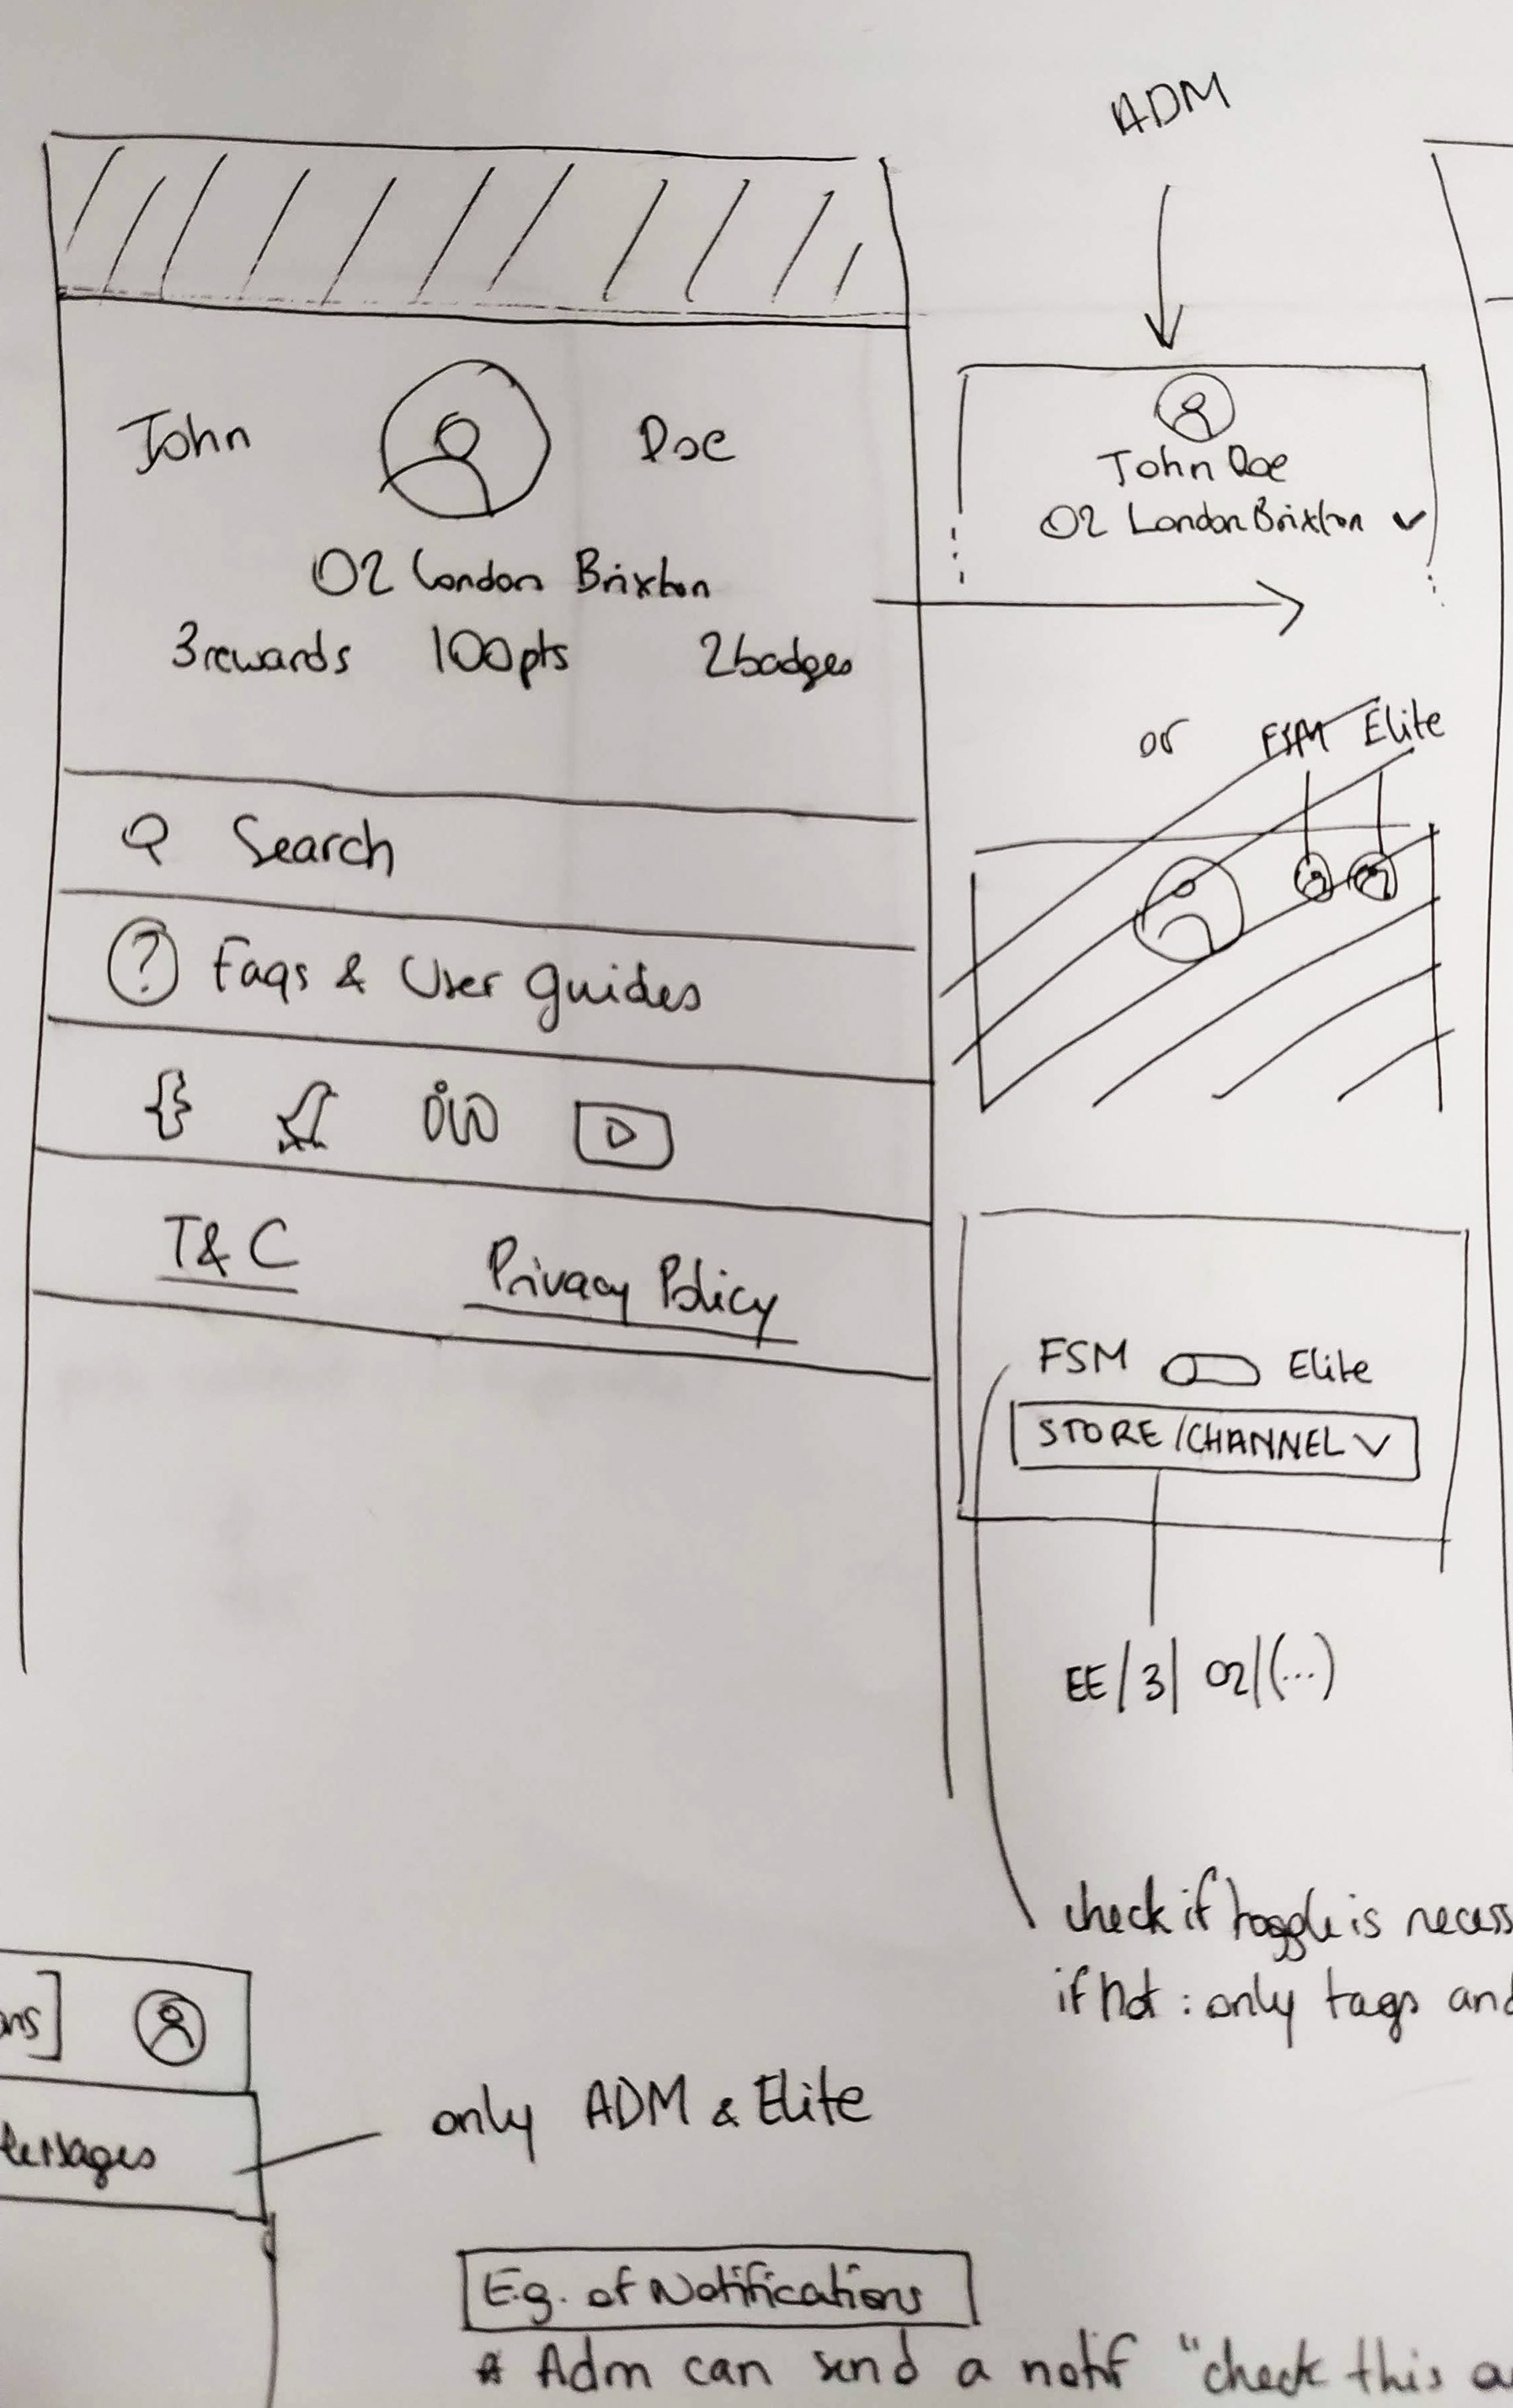 ADM
John Doe
O2 London Brixton
3 rewards 100pts 2 badges
Search
? Faqs & User guides
T&C Privacy Policy
John Doe
O2 London Brixton
or FSM Elite
FSM Elite
STORE/CHANNEL
EE/3/O2/(...)
check if toggle is necess
if not: only tags and
ons]
only ADM & Elite
essages
E.g. of Notifications
* Adm can send a notif "check this a